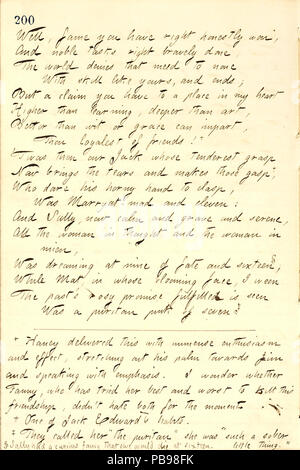 200
Well, fame you have right honestly won,
And noble tasks right bravely done
The world denies that meed to none
With skill like yours, and ends;
But a claim you have to a place in my heart
Higher than learning, deeper than art,
Better than wit or grace can impart,
Then loyalest of friends!
'Twas then our Jack whose tenderest grasp
Now brings the tears and makes those gasp
Who dare his horny hand to clasp,
Was Marryat mad and eleven:
And Sally, now calm and grave and serene,
All the woman in thought and the woman in
mien,
Was dreaming at nine of fate and sixteen,
While Mat, in whose blooming face, I ween
The past's rosy promise fulfilled is seen
Was a puritan punk of seven?
Nancy delivered this with immense enthusiasm
and effect, stretching out his palm towards Jim
and speaking with emphasis. I wonder whether
Fanny, who has tried her best and worst to kill this
friendship, didn't hate both for the moment.
One of Jack Edwards' habits.
They called her the puritan she was "such a sober
little thing."
Sally had a curious fancy that she would die at sixteen.
alamy
PB98FK